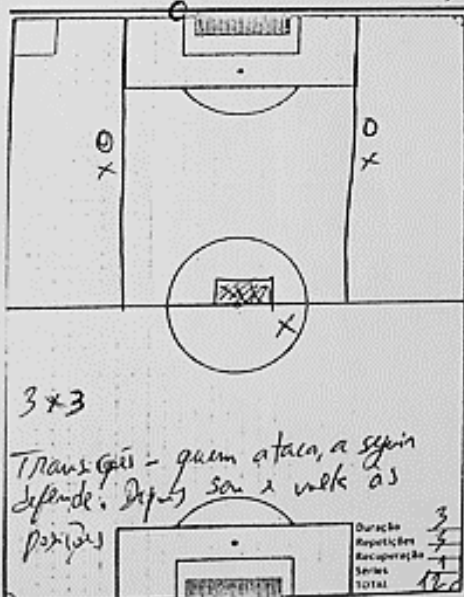 O
O
X
O
X
X
3 x 3
Transições - quem ataca, a seguir
defende. Depois sai e volta às
posições
Duração 3
Repetições 3
Recuperação 1
Series
TOTAL 12